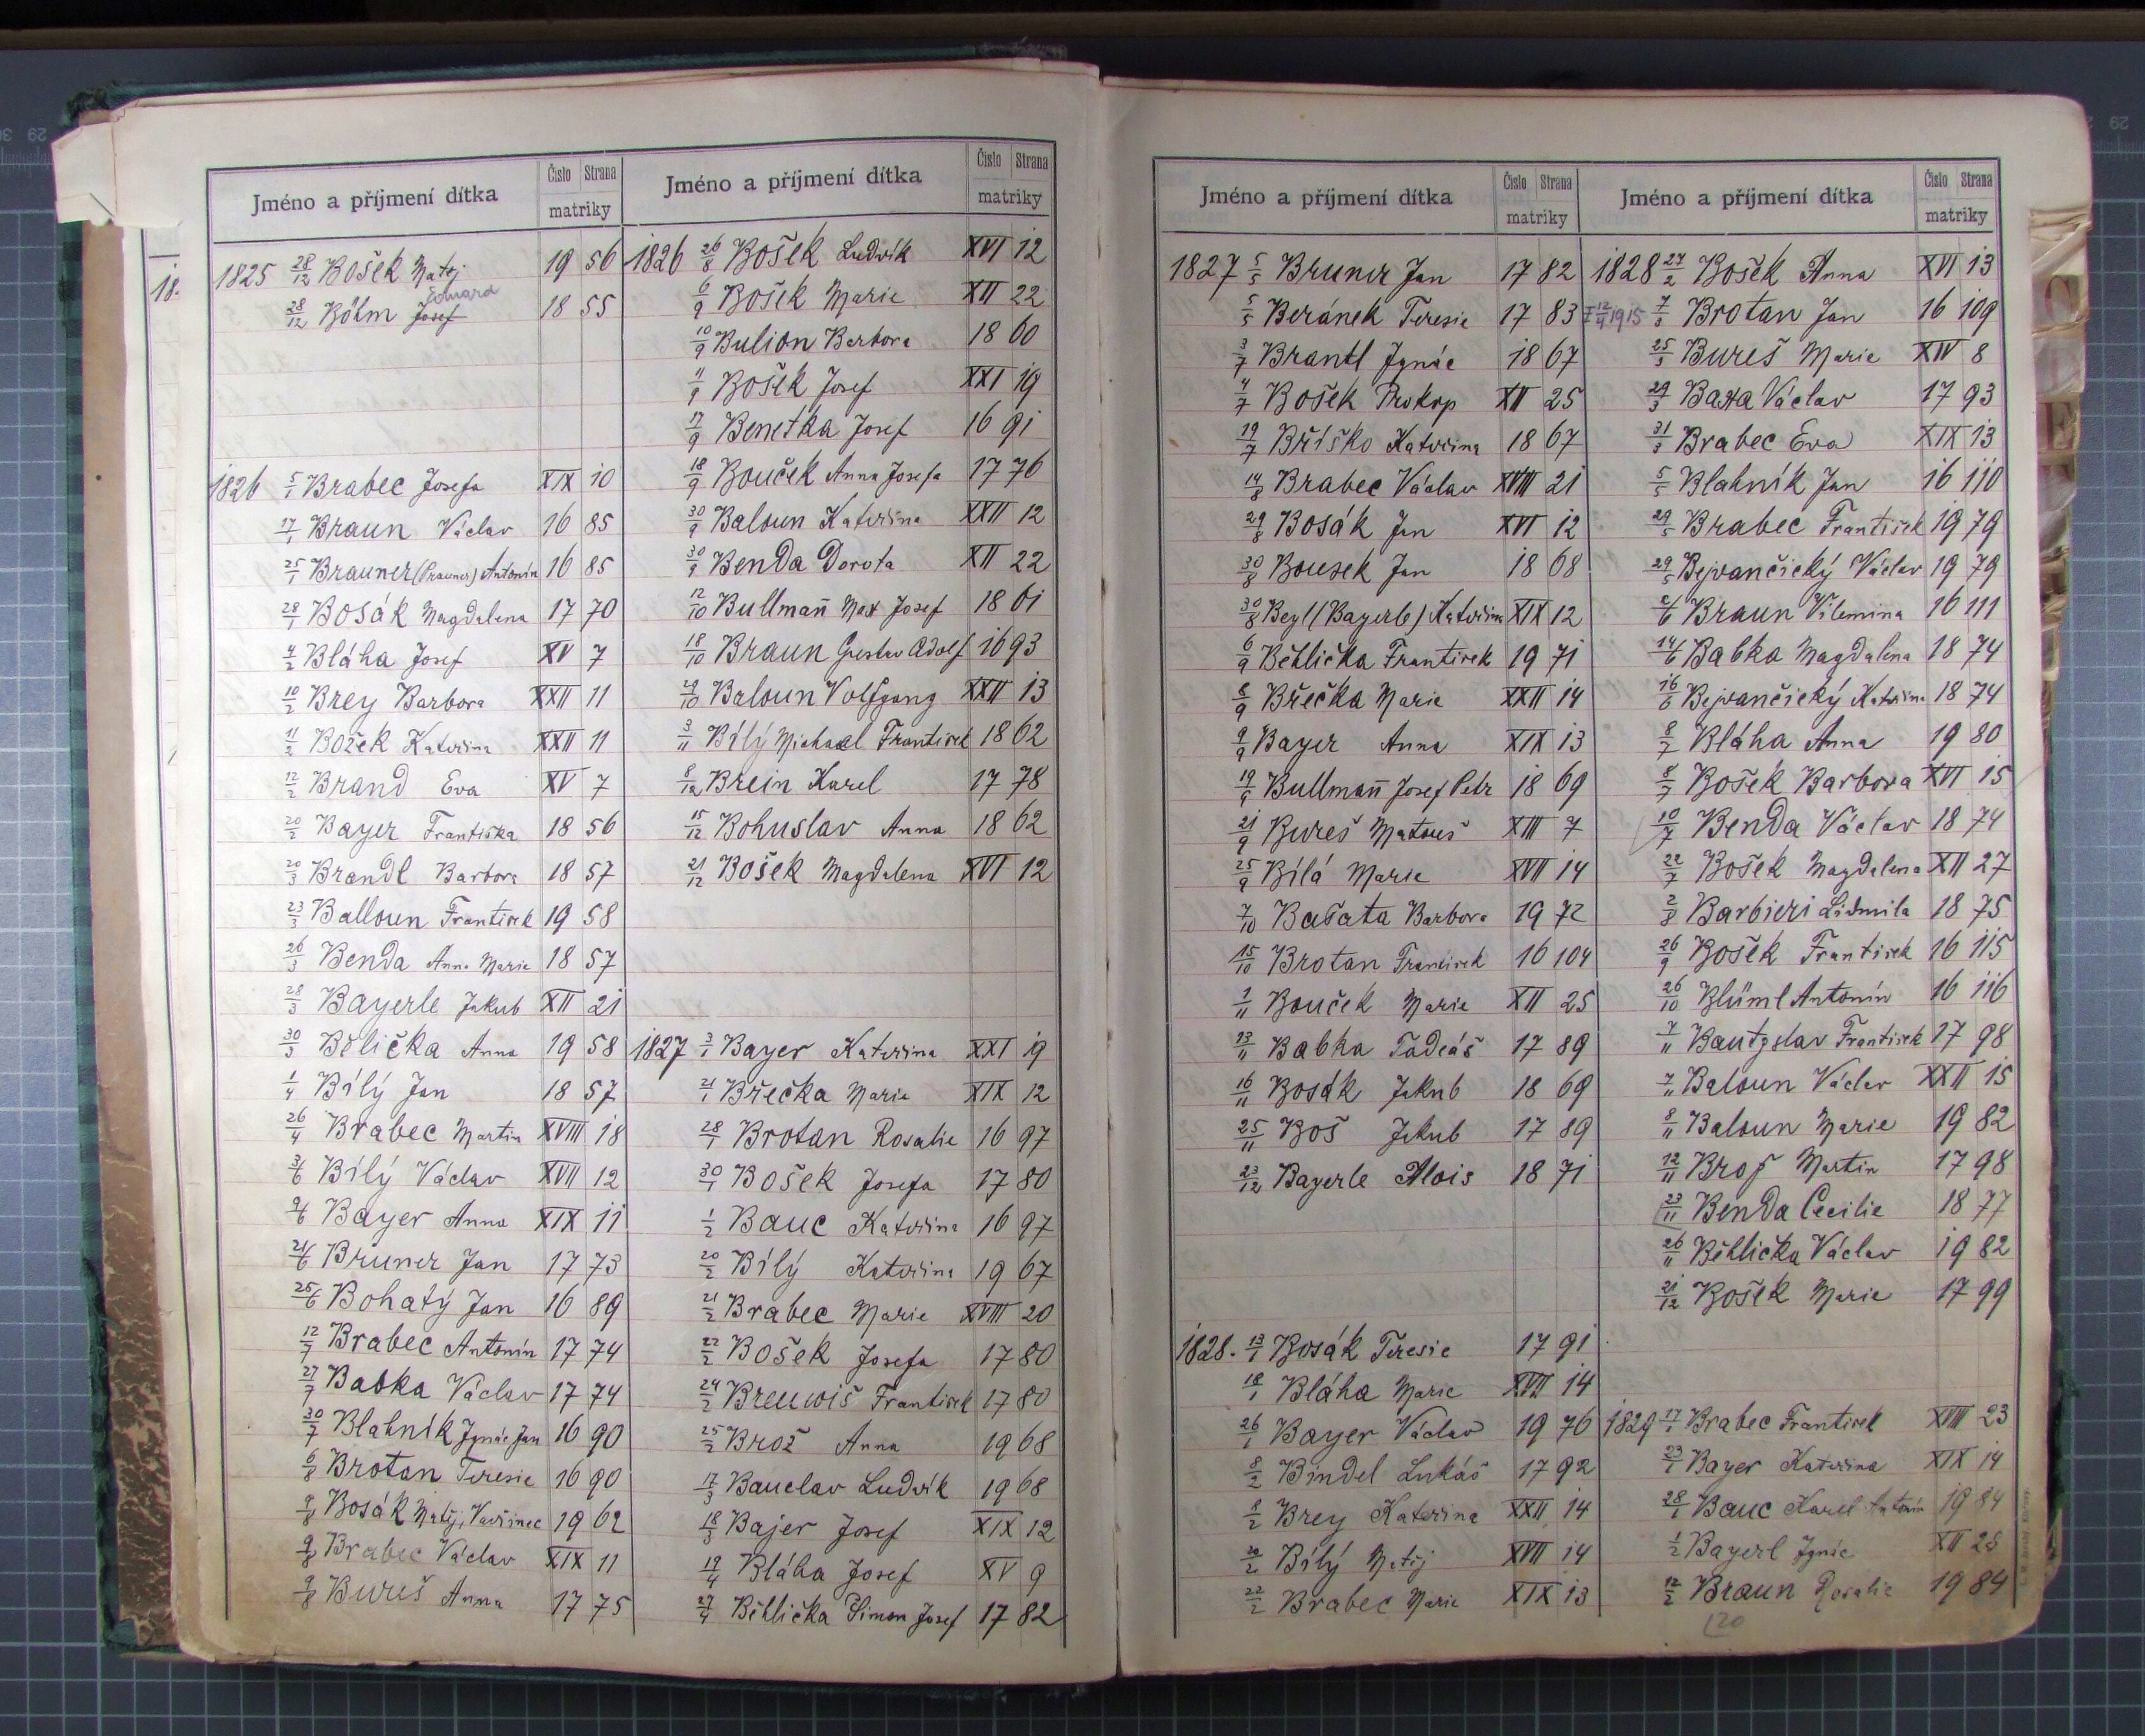 Jméno a příjmení dítka
Číslo Strana
matriky
18.
1825 28/12 Bošek Matěj 19 56
Eduard
28/12 Böhm Josef 18 55
1826 5/1 Brabec Josefa XIX 10
17/1 Braun Václav 16 85
25/1 Brauner (Prauner) Antonín 16 85
28/1 Bosák Magdalena 17 70
4/2 Bláha Josef XV 7
10/2 Brey Barbora XXII 11
11/2 Božek Kateřina XXII 11
12/2 Brand Eva XV 7
20/2 Bayer Františka 18 56
20/3 Brandl Barbora 18 57
23/3 Balloun František 19 58
26/3 Benda Anna Marie 18 57
28/3 Bayerle Jakub XII 21
30/3 Bělička Anna 19 58
1/4 Bílý Jan 18 57
26/4 Brabec Martin XVIII 18
3/6 Bílý Václav XVII 12
9/6 Bayer Anna XIX 11
21/6 Bruner Jan 17 73
25/6 Bohatý Jan 16 89
12/7 Brabec Antonín 17 74
27/7 Babka Václav 17 74
30/7 Blahník Ignác Jan 16 90
6/8 Brotan Teresie 16 90
9/8 Bosák Matěj, Vavřinec 19 62
9/8 Brabec Václav XIX 11
9/8 Bureš Anna 17 75
Jméno a příjmení dítka
Číslo Strana
matriky
1826 26/8 Bošek Ludvík XVI 12
6/9 Bošek Marie XII 22
10/9 Bulion Barbora 18 60
11/9 Bošek Josef XXI 19
17/9 Benetka Josef 16 91
18/9 Bouček Anna Josefa 17 76
30/9 Baloun Kateřina XXII 12
30/9 Benda Dorota XII 22
12/10 Bullmañ Max Josef 18 61
18/10 Braun Gustav Adolf 16 93
29/10 Baloun Volfgang XXII 13
3/11 Bílý Michael František 18 62
8/12 Brein Karel 17 78
15/12 Bohuslav Anna 18 62
21/12 Bošek Magdalena XVI 12
1827 3/1 Bayer Kateřina XXI 19
21/1 Břečka Marie XIX 12
28/1 Brotan Rosalie 16 97
30/1 Bošek Josefa 17 80
1/2 Bauc Kateřina 16 97
20/2 Bílý Kateřina 19 67
21/2 Brabec Marie XVIII 20
22/2 Bošek Josefa 17 80
24/2 Breuwiš František 17 80
25/2 Brož Anna 19 68
17/3 Bauclav Ludvík 19 68
18/3 Bajer Josef XIX 12
19/4 Bláha Josef XV 9
27/4 Běhlička Šimon Josef 17 82
Jméno a příjmení dítka
Číslo Strana
matriky
1827 5/5 Bruner Jan 17 82
5/5 Beránek Teresie 17 83
3/7 Brantl Ignác 18 67
4/7 Bošek Prokop XII 25
19/7 Bříško Kateřina 18 67
14/8 Brabec Václav XVIII 21
29/8 Bosák Jan XVI 12
30/8 Bousek Jan 18 68
30/8 Beyl (Bayerle) Kateřina XIX 12
6/9 Běhlička František 19 71
8/9 Břečka Marie XXII 14
9/9 Bayer Anna XIX 13
19/9 Bullmañ Josef Petr 18 69
21/9 Bureš Matouš XIII 7
25/9 Bílá Marie XVII 14
7/10 Bašata Barbora 19 72
15/10 Brotan František 16 104
1/11 Bouček Marie XII 25
13/11 Babka Tadeáš 17 89
16/11 Bosák Jakub 18 69
25/11 Boš Jakub 17 89
23/12 Bayerle Alois 18 71
1828. 13/1 Bosák Teresie 17 91
18/1 Bláha Marie XVII 14
26/1 Bayer Václav 19 76
8/2 Bindel Lukáš 17 92
8/2 Brey Kateřina XXII 14
20/2 Bílý Matěj XVII 14
22/2 Brabec Marie XIX 13
Jméno a příjmení dítka
Číslo Strana
matriky
1828 27/2 Bošek Anna XVI 13
1915 7/3 Brotan Jan 16 109
25/3 Bureš Marie XIV 8
29/3 Baxa Václav 17 93
31/3 Brabec Eva XIX 13
5/5 Blahník Jan 16 110
29/5 Brabec František 19 79
29/5 Bejvančický Václav 19 79
2/6 Braun Vilemina 16 111
14/6 Babka Magdalena 18 74
16/6 Bejvančický Kateřina 18 74
8/7 Bláha Anna 19 80
8/7 Bošek Barbora XVI 15
10/7 Benda Václav 18 74
22/7 Bošek Magdalena XII 27
2/8 Barbieri Lidmila 18 75
26/9 Bošek František 16 115
26/10 Blüml Antonín 16 116
7/11 Bautzslav František 17 98
7/11 Baloun Václav XXII 15
8/11 Baloun Marie 19 82
12/11 Brož Martin 17 98
23/11 Benda Cecilie 18 77
26/11 Běhlička Václav 19 82
21/12 Bošek Marie 17 99
1829 17/1 Brabec František XVIII 23
23/1 Bayer Kateřina XIX 14
28/1 Bauc Karel Antonín 19 84
1/2 Bayerl Ignác XII 28
12/2 Braun Rosalie 19 84
120